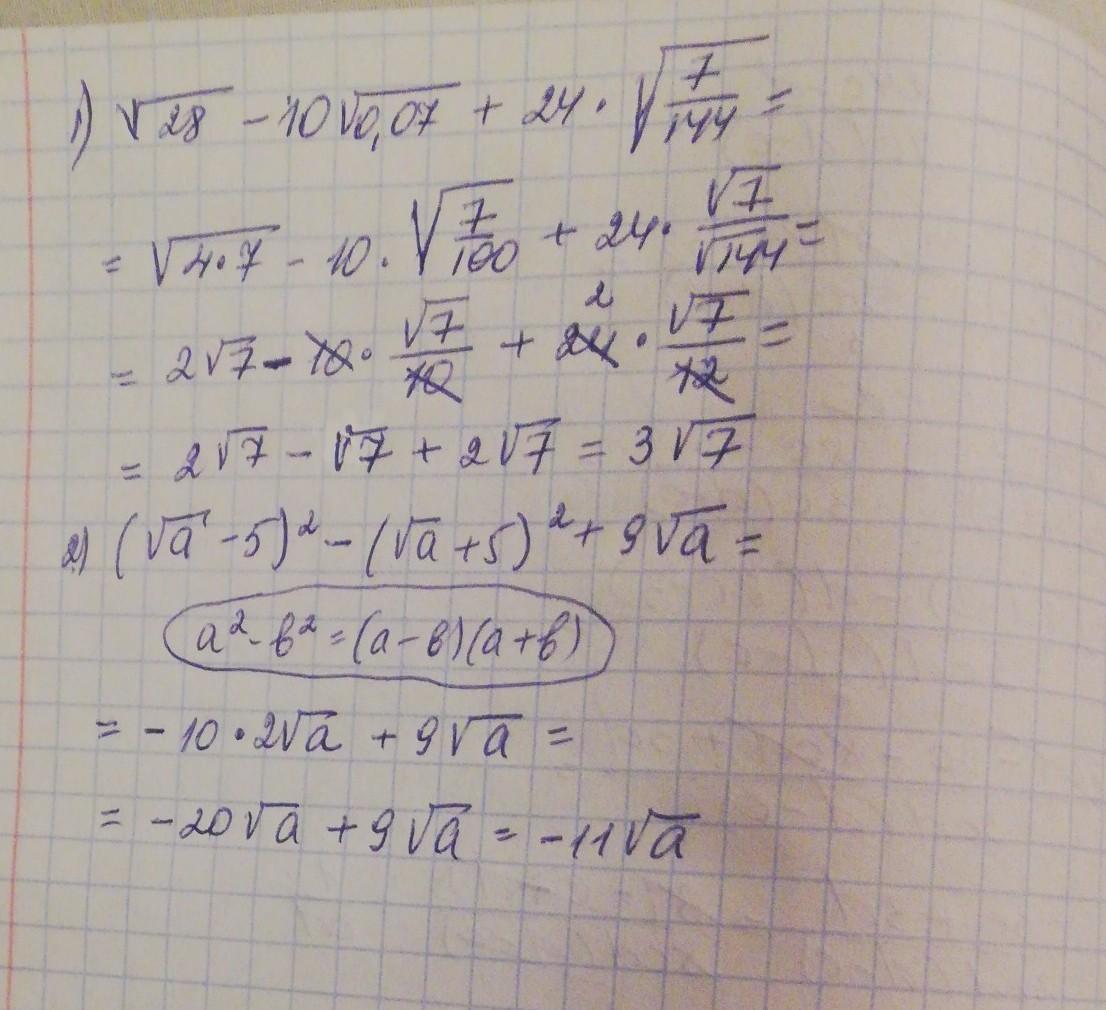 1) √28 - 10√0,07 + 24 · √(7/144) =
= √(4·7) - 10 · √(7/100) + 24 · √7/√144 =
= 2√7 - 10 · √7/10 + 24 2 · √7/12 =
= 2√7 - √7 + 2√7 = 3√7
2) (√a - 5)² - (√a + 5)² + 9√a =
a² - в² = (a - в)(a + в)
= - 10 · 2√a + 9√a =
= -20√a + 9√a = -11√a